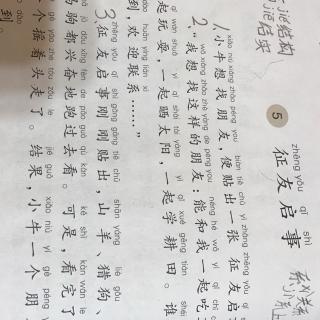 5
zhēng yǒu qǐ shì
征友启事
xiǎo niú xiǎng zhǎo péng you biàn tiē chū yì zhāng zhēng yǒu qǐ
1.小牛想找朋友，便贴出一张征友启
wǒ xiǎng zhǎo zhè yàng de péng you néng hé wǒ yì qǐ
2.“我想找这样的朋友：能和我一起吃
qǐ wán shuǎ yì qǐ shài tài yáng yì qǐ xué gēng tián shéi
起玩耍，一起晒太阳，一起学耕田。谁
dào huān yíng lián xì
到，欢迎联系……”
zhēng yǒu qǐ shì gāng gāng tiē chū shān yáng liè gǒu
3.征友启事刚刚贴出，山羊、猎狗、
jū dōu xīng fèn de pǎo guò qù kàn kě shì kàn wán le
马驹都兴奋地跑过去看。可是，看完了
gè yáo zhe tóu zǒu le jié guǒ xiǎo niú yí gè péng
个摇着头走了。结果，小牛一个朋
dào
到。